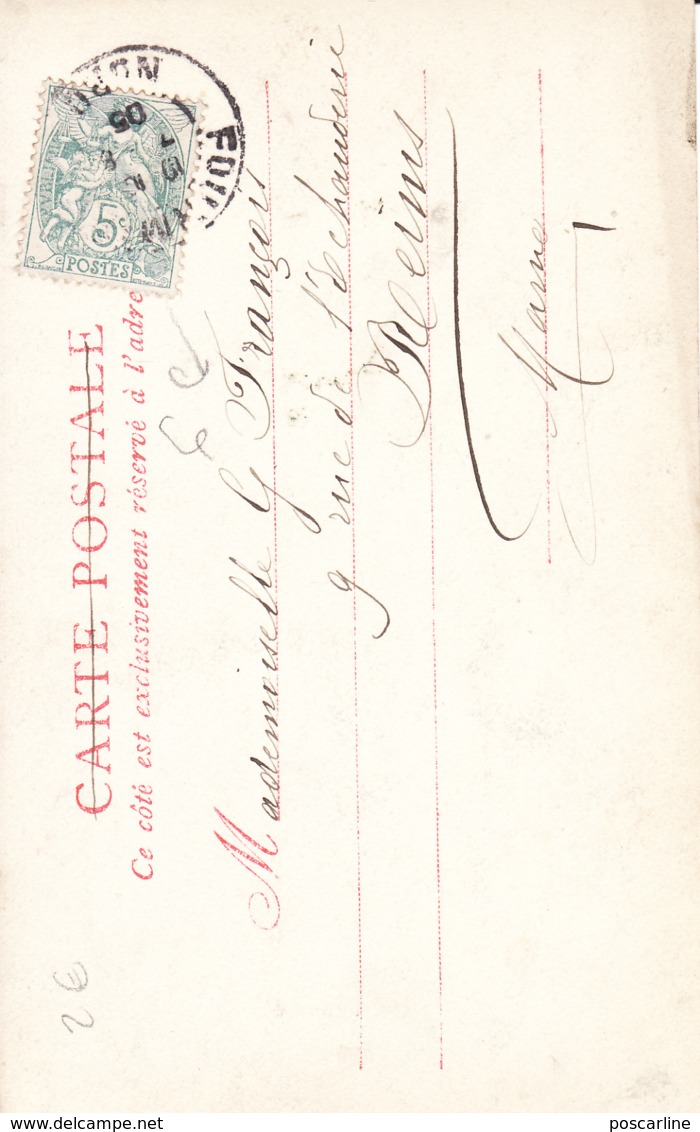 CARTE POSTALE
Ce côté est exclusivement réservé à l'adre
5c
POSTES
05
Mademoiselle G François
9 rue de l'échauderie
Reims
Marne
2€
delcampe.net
poscarline